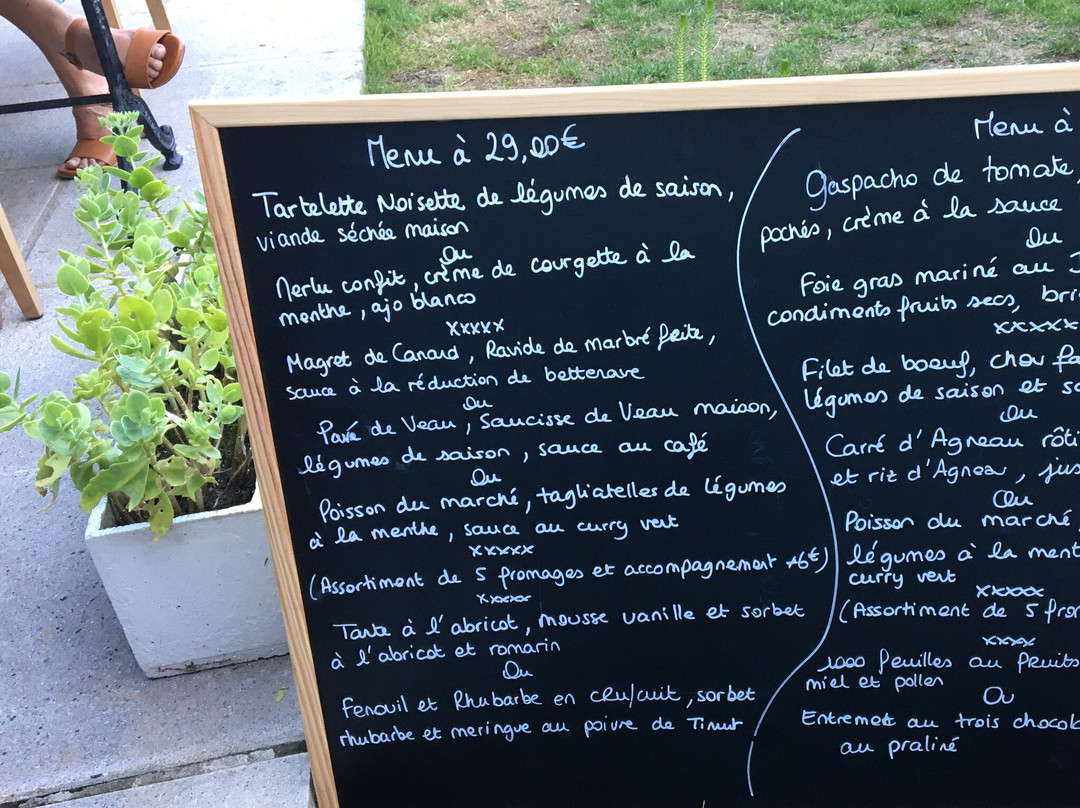 Menu à 29,00€
Tartelette Noisette de légumes de saison,
viande séchée maison
Ou
Merlu confit, crème de courgette à la
menthe, ajo blanco
xxxxx
Magret de Canard, Ravide de marbré frite,
sauce à la réduction de betterave
Ou
Pavé de Veau, Saucisse de Veau maison,
légumes de saison, sauce au café
Ou
Poisson du marché, tagliatelles de légumes
à la menthe, sauce au curry vert
xxxxx
(Assortiment de 5 fromages et accompagnement +6€)
xxxxx
Tarte à l'abricot, mousse vanille et sorbet
à l'abricot et romarin
Ou
Fenouil et Rhubarbe en cru/cuit, sorbet
rhubarbe et meringue au poivre de Timut
Menu à
Gaspacho de tomate,
pochés, crème à la sauce
Ou
Foie gras mariné au
condiments fruits secs, bri
xxxxx
Filet de boeuf, chou fa
légumes de saison et sa
Ou
Carré d'Agneau rôti
et riz d'Agneau, jus
Ou
Poisson du marché
légumes à la ment
curry vert
xxxxx
(Assortiment de 5 from
xxxx
1000 feuilles au fruits
miel et pollen
Ou
Entremet au trois chocol
au praliné